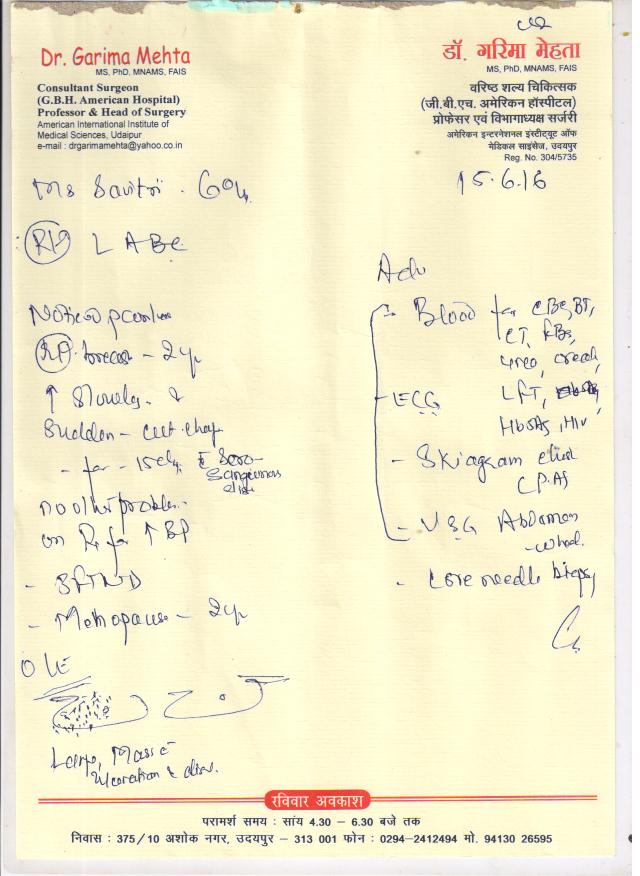 Dr. Garima Mehta
MS, PhD, MNAMS, FAIS
Consultant Surgeon
(G.B.H. American Hospital)
Professor & Head of Surgery
American International Institute of
Medical Sciences, Udaipur
e-mail : drgarimamehta@yahoo.co.in
डॉ. गरिमा मेहता
MS, PhD, MNAMS, FAIS
वरिष्ठ शल्य चिकित्सक
(जी.बी.एच. अमेरिकन हॉस्पीटल)
प्रोफेसर एवं विभागाध्यक्ष सर्जरी
अमेरिकन इन्टरनेशनल इंस्टीट्यूट ऑफ
मेडिकल साइंसेज, उदयपुर
Reg. No. 304/5735
15.6.16
Ms Savitri . 60y.
LABC
Noticed
breast - 2yr
↑ Slowly. &
Sudden -
- for - 15
Sero-
Sanguinous
no other problem.
on Rx for ↑ BP
- 3FTND
- Menopause - 2yr
O/E
Large, Mass c̄
Ulceration &
Adv
- Blood for CBC, BT,
CT, RBS,
Urea, creat,
LFT,
HbsAg, HIV
- ECG
- Skiagram chest
- USG Abdomen
- whole.
- Core needle biopsy
रविवार अवकाश
परामर्श समय : सांय 4.30 – 6.30 बजे तक
निवास : 375/10 अशोक नगर, उदयपुर – 313 001 फोन : 0294-2412494 मो. 94130 26595